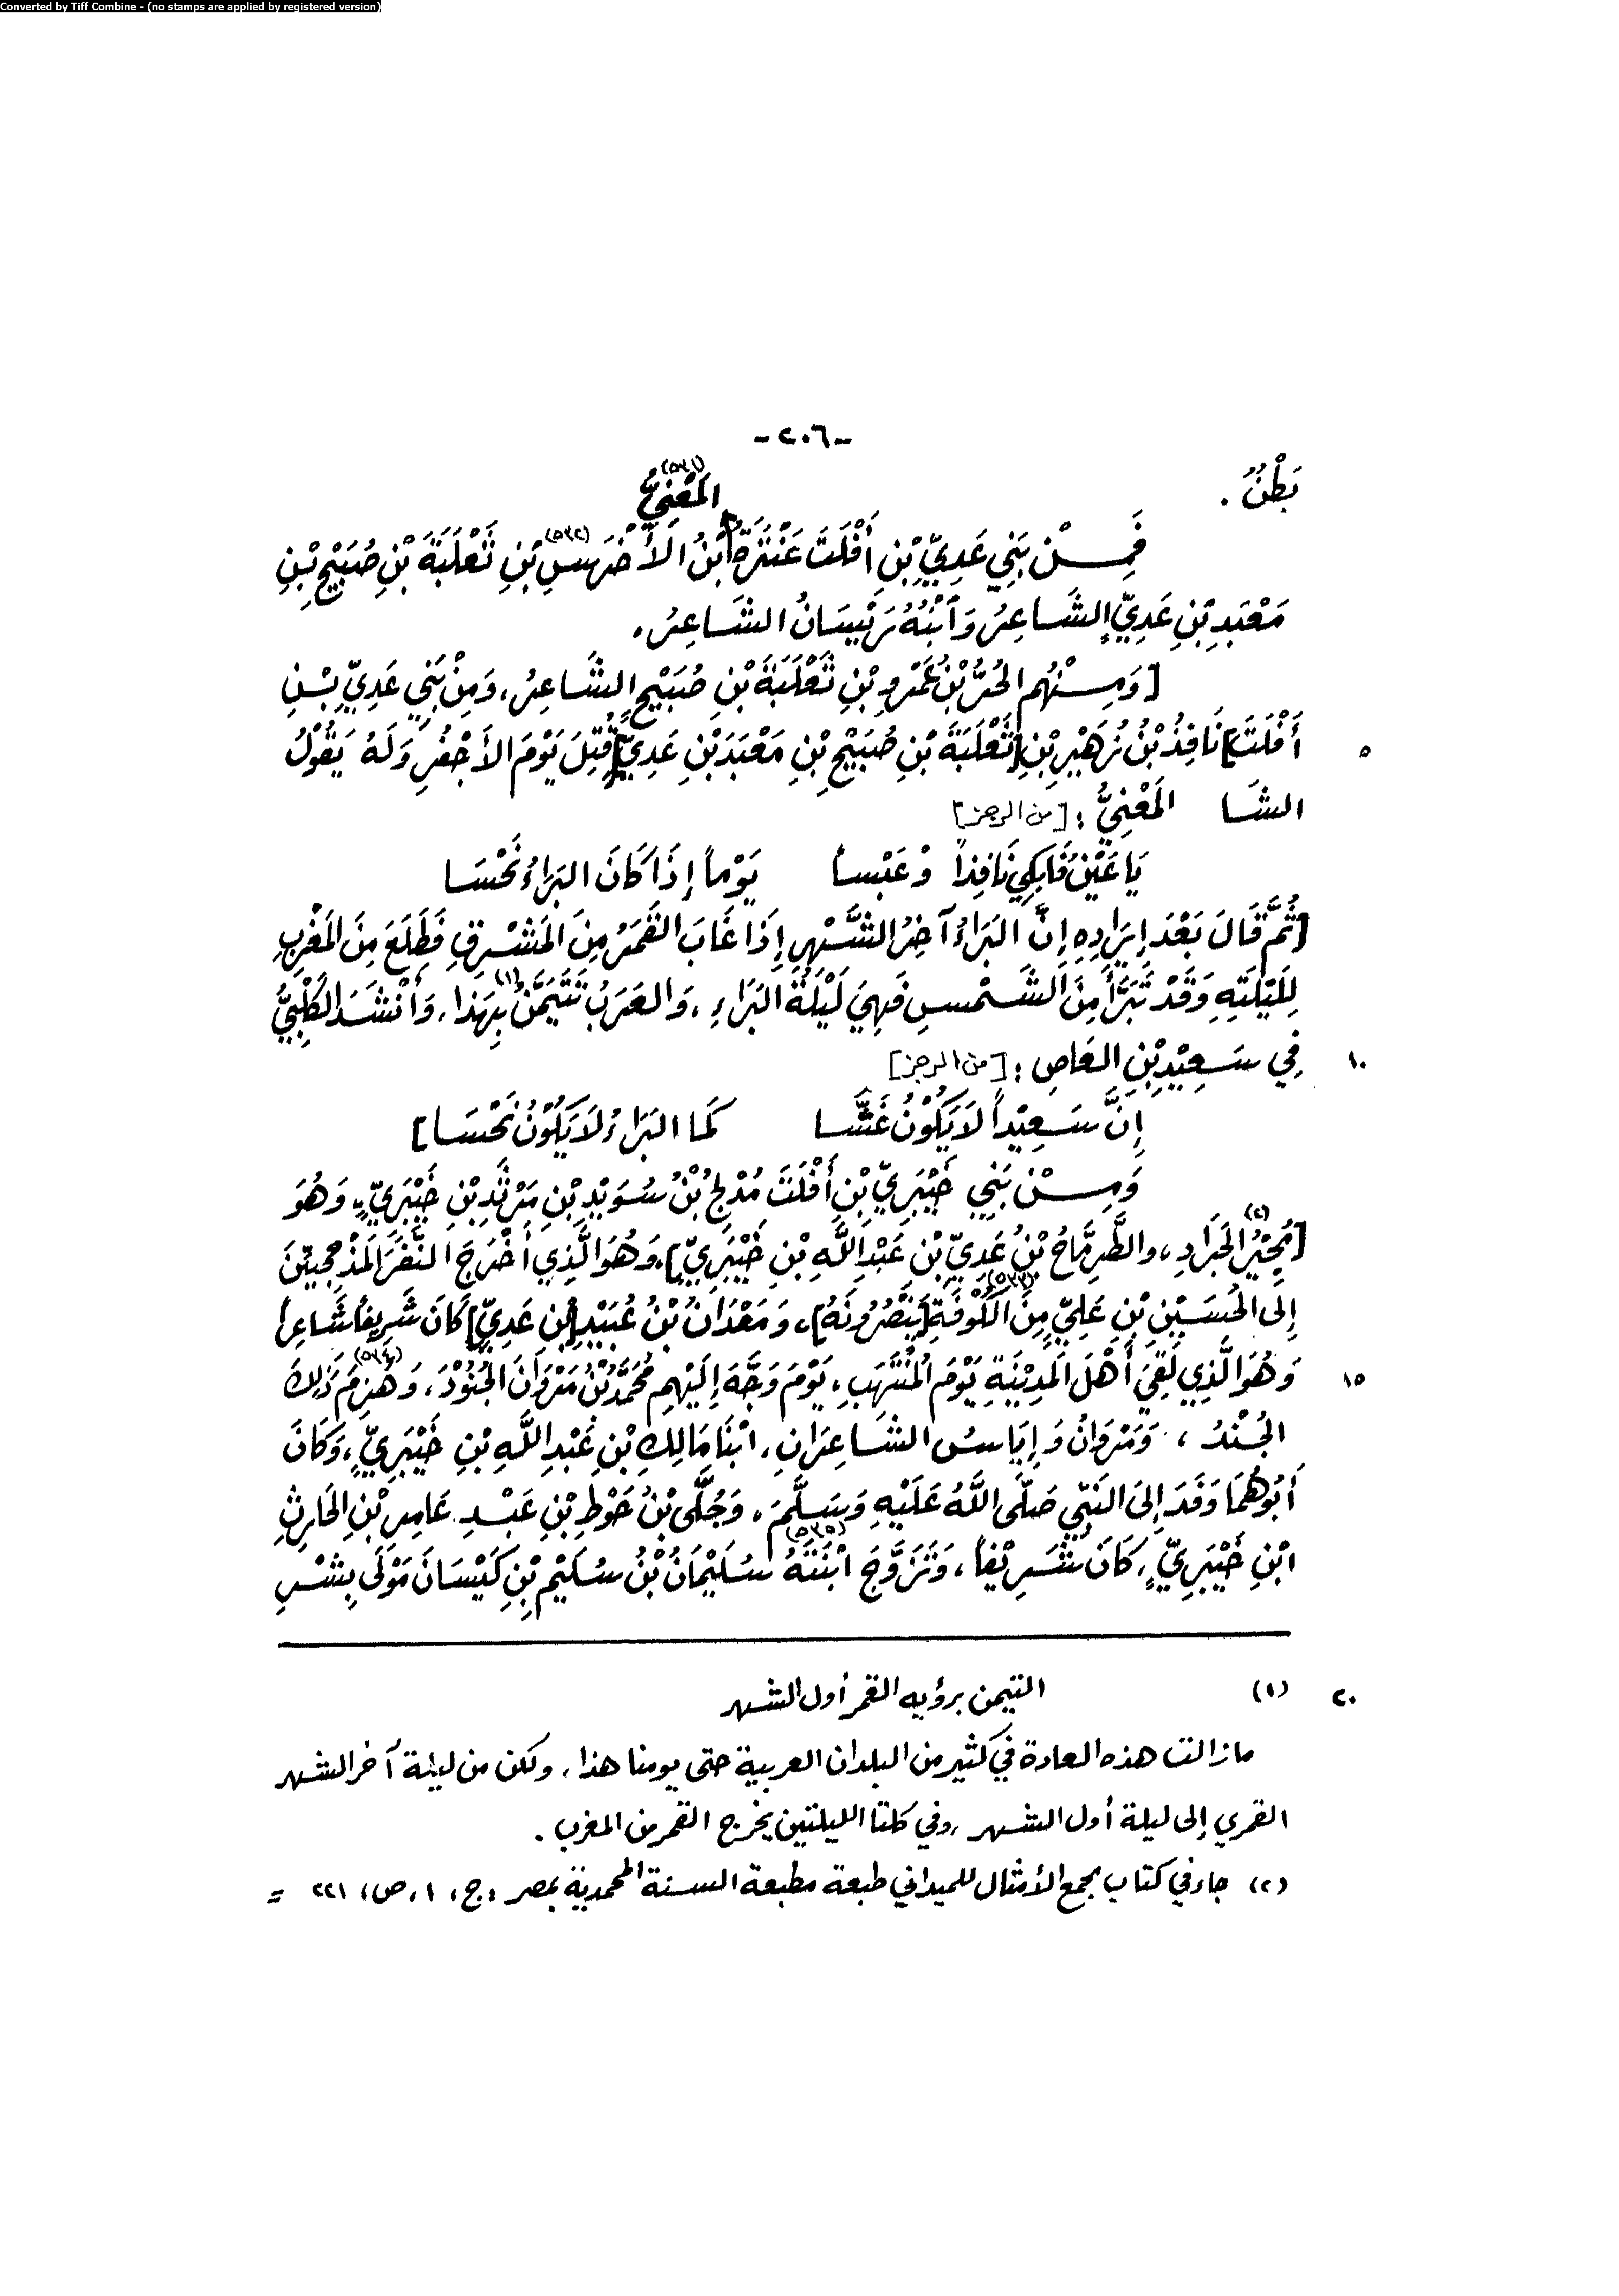 Converted by Tiff Combine - (no stamps are applied by registered version)
-٢٠٦-
بَطْنٌ .
المَعْنِيُّ (٥٣١)
فَمِنْ بَنِي عَدِيِّ بْنِ أَفْلَتَ عَنْتَرَةُ ابْنُ الأَخْرَسِ (٥٣٢) بْنِ ثَعْلَبَةَ بْنِ صُبَيْحِ بْنِ
مَعْبَدِ بْنِ عَدِيٍّ الشَّاعِرُ وَابْنُهُ رَئيسَانُ الشَّاعِرُ .
[وَمِنْهُم الحُرُّ بْنُ عَمْرِو بْنِ ثَعْلَبَةَ بْنِ صُبَيْحٍ الشَّاعِرُ ، وَمِنْ بَنِي عَدِيِّ بْنِ
أَفْلَتَ] نَافِذُ بْنُ زُهَيْرِ بْنِ [ثَعْلَبَةَ بْنِ صُبَيْحِ بْنِ مَعْبَدَ بْنِ عَدِيٍّ] قُتِلَ يَوْمَ الأَجْفُرِ وَلَهُ يَقُوْلُ
٥
الشا المَعْنِيُّ : [من الرجز]
يَا عَيْنُ فَابْكِي نَافِذاً وعَبْسا يَوْماً إِذَا كَانَ البَرَاءُ نَحْسَا
[ثُمَّ قَالَ بَعْدَ إِيرَادِهِ إِنَّ البَرَاءُ آخِرُ الشَّهْرِ إِذَا غَابَ القَمَرُ مِنَ المَشْرِقِ فَطَلَعَ مِنَ المَغْرِبِ
لِلَيْلَتِهِ وَقَدْ تَبَرَّأَ مِنَ الشَّمْسِ فَهِيَ لَيْلَةُ البَرَاءِ ، وَالعَرَبُ تَتَيَمَّنُ (١) بِهَذا ، وَأَنْشَدَ الكَلْبِيُّ
فِي سَعِيْدِ بْنِ العَاصِ : [من الرجز]
١٠
إِنَّ سَعِيْداً لاَ يَكُوْنُ غَشَّا كَمَا البَرَاءُ لاَ يَكُوْنُ نَحْسَا]
وَمِنْ بَنِي خَيْبَرِيِّ بْنِ أَفْلَتَ مُدْلِجُ بْنُ سُوَيْدِ بْنِ مَرْثَدِ بْنِ خَيْبَرِيٍّ ، وَهُوَ
[مُجِيْرُ الجَرَادِ (٢) ، والطِّرِمَّاحُ بْنُ عَدِيِّ بْنِ عَبْدِ اللَّهِ بْنِ خَيْبَرِيٍّ] ، وَهُوَ الَّذِي أَخْرَجَ النَّفَرَ المَذْحِجِيِّيْنَ
إِلى الحُسَيْنِ بْنِ عَلِيٍّ مِنَ الكُوْفَةِ (٥٣٣) [يَنْصُرُونَهُ] ، وَمَعْدَانُ بْنُ عُبَيْدِ [بن عَدِيٍّ] كَانَ شَرِيفاً شَاعِراً
وَهُوَ الَّذِي لَقِيَ أَهْلَ المَدِيْنَةِ يَوْمَ المُنْتَهَبِ ، يَوْمَ وَجَّهَ إِلَيْهِم مُحَمَّدُ بْنُ مَرْوَانَ الجُنُوْدَ ، وَهَزَمَ ذَلِكَ (٥٣٤)
١٥
الجُنْدُ ، وَمَرْوَانُ وَإِيَاسُ الشَّاعِرَانِ ، ابْنَا مَالِكِ بْنِ عَبْدِ اللَّهِ بْنِ خَيْبَرِيٍّ ، وَكَانَ
أَبُوهُمَا وَفَدَ إِلَى النَّبِيِّ صَلَّى اللَّهُ عَلَيْهِ وَسَلَّمَ ، وَجُلَّى بْنُ حَوْطِ بْنِ عَبْدِ عَامِرِ بْنِ الحَارِثِ
ابْنِ خَيْبَرِيٍّ ، كَانَ شَرِيْفاً ، وَتَزَوَّجَ ابْنَتَهُ سُلَيْمَانُ (٥٣٥) بْنُ سُلَيْمِ بْنِ كَيْسَانَ مَوْلَى بِشْرِ
(١) التيمن برؤيه القمر أول الشهر
٢٠
مازالت هذه العادة في كثير من البلدان العربية حتى يومنا هذا ، ولكن من ليلة آخر الشهر
القمري إلى ليلة أول الشهر ، وفي كلتا الليلتين يخرج القمر من المغرب .
(٢) جاء في كتاب مجمع الأمثال للميداني طبعة مطبعة السنة المحمدية بمصر ، ج ، ١ ، ص ، ٢٢١ =